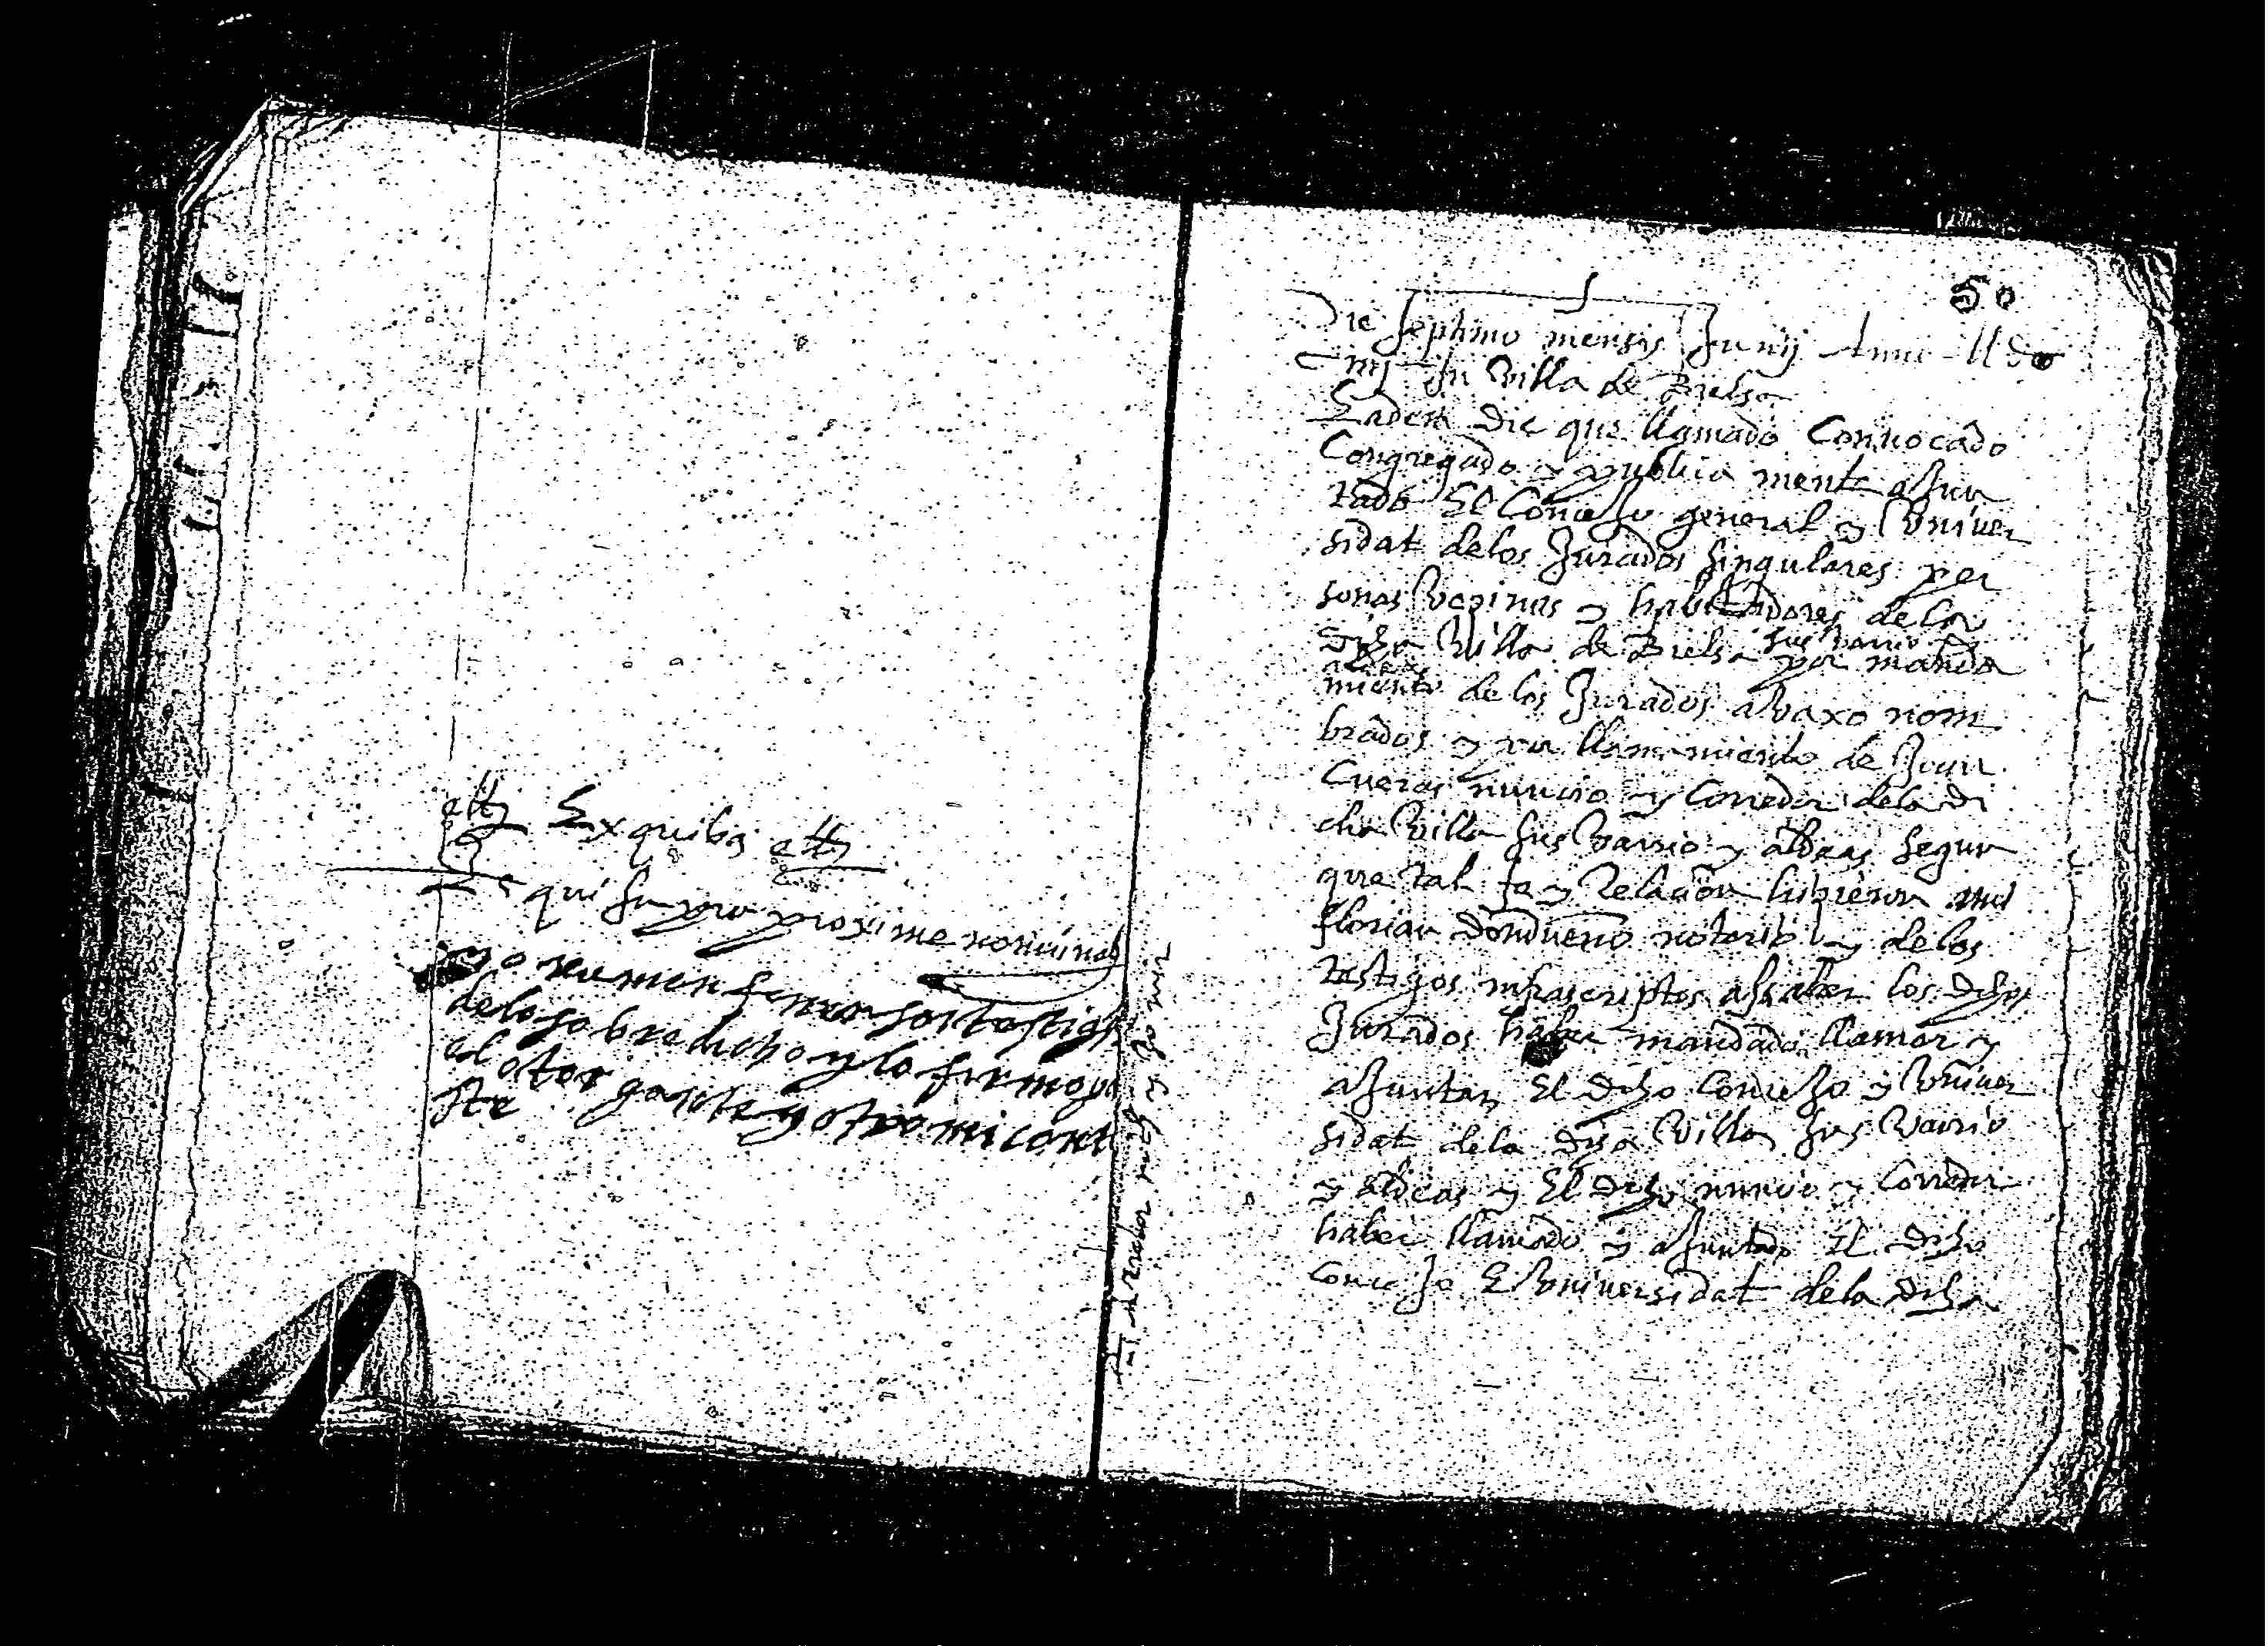 etts Exquibs etts
qui supra proxime nominati
Yo ramon ferrer soi testigo
de lo sobre dicho y lo firmo por
el otorgante y otro mi cont
ste
50
Die septimo mensis Junij Anno
In Villa de Bielsa
Eadem Die que llamado Conuocado
Congregado y publica mente aJun
tado El Concejo general y Vniuer
sidat de los Jurados singulares per
sonas Vezinos y habitadores de la
dicha Villa de Bielsa sus varrio y
aldeas por manda
miento de los Jurados abaxo nom
brados y por llamamiento de Juan
Cueras nuncio y Corredor de la di
cha Villa sus Varrio y aldeas segun
que tal fe y Relacion hizieron a mi
florian Donduerio notario y de los
testigos infrascriptos assaber los dichos
Jurados haber mandado llamar y
aJuntar El dicho Concejo y Vniuer
sidat de la dicha Villa sus Varrio
y aldeas y El dicho nuncio y Corredor
haber llamado y aJuntado El dicho
Concejo E Vniuersidat de la dicha